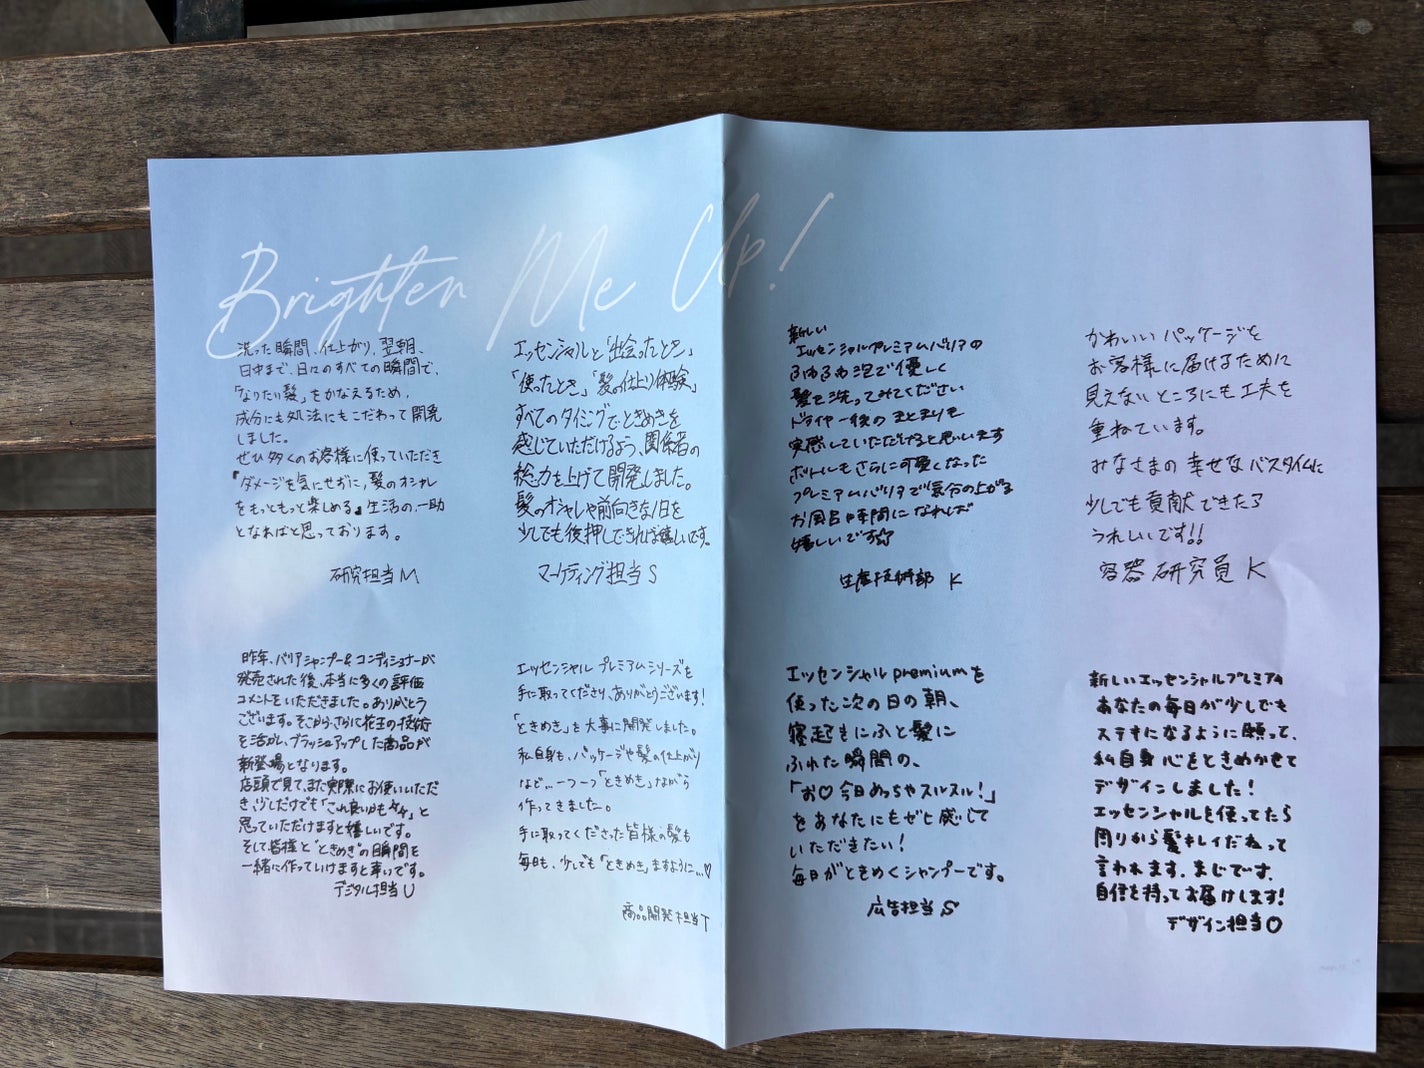 Brighten Me Up!
洗った瞬間、仕上がり、翌朝、
日中まで、日々のすべての瞬間で、
「なりたい髪」をかなえるため、
成分にも処法にもこだわって開発
しました。
ぜひ多くのお客様に使っていただき
『ダメージを気にせずに、髪のオシャレ
をもっともっと楽しめる』生活の、一助
となればと思っております。
研究担当M
エッセンシャルと「出会ったとき」
「使ったとき」「髪の仕上り体験」
すべてのタイミングで、ときめきを
感じていただけるよう、関係者の
総力を上げて開発しました。
髪のオシャレや前向きな1日を
少しでも後押しできれば嬉しいです。
マーケティング担当 S
新しい
エッセンシャルプレミアムバリアの
ふわふわ泡で優しく
髪を洗ってみてください
ドライヤー後のまとまりも
実感していただけると思います
ボトルもさらに可愛くなった
プレミアムバリアで気分の上がる
お風呂の時間になれば
嬉しいです☆
生産技術部 K
かわいいパッケージを
お客様に届けるために
見えないところにも工夫を
重ねています。
みなさまの幸せなバスタイムに
少しでも貢献できたら
うれしいです!!
容器研究員 K
昨年、バリアシャンプー&コンディショナーが
発売された後、本当に多くの評価
コメントをいただきました。ありがとう
ございます。そこから、さらに花王の技術
を活かし、ブラッシュアップした商品が
新登場となります。
店頭で見て、また実際にお使いいただ
き、少しだけでも「これ良いかも」と
思っていただけますと嬉しいです。
そして皆様と"ときめき"の瞬間を
一緒に作っていけますと幸いです。
デジタル担当U
エッセンシャル プレミアムシリーズを
手に取ってくださり、ありがとうございます!
「ときめき」を大事に開発しました。
私自身も、パッケージや髪の仕上がり
など...一つ一つ「ときめき」ながら
作ってきました。
手に取ってくださった皆様の髪も
毎日も、少しでも「ときめき」ますように...♡
商品開発担当T
エッセンシャルpremiumを
使った次の日の朝、
寝起きにふと髪に
ふれた瞬間の、
「お♡今日めっちゃスルスル!」
をあなたにもぜひ感じて
いただきたい!
毎日がときめくシャンプーです。
広告担当 S
新しいエッセンシャルプレミアム
あなたの毎日が少しでも
ステキになるように願って、
私自身心をときめかせて
デザインしました!
エッセンシャルを使ってたら
周りから髪キレイだねって
言われます。まじです。
自信を持ってお届けします!
デザイン担当O